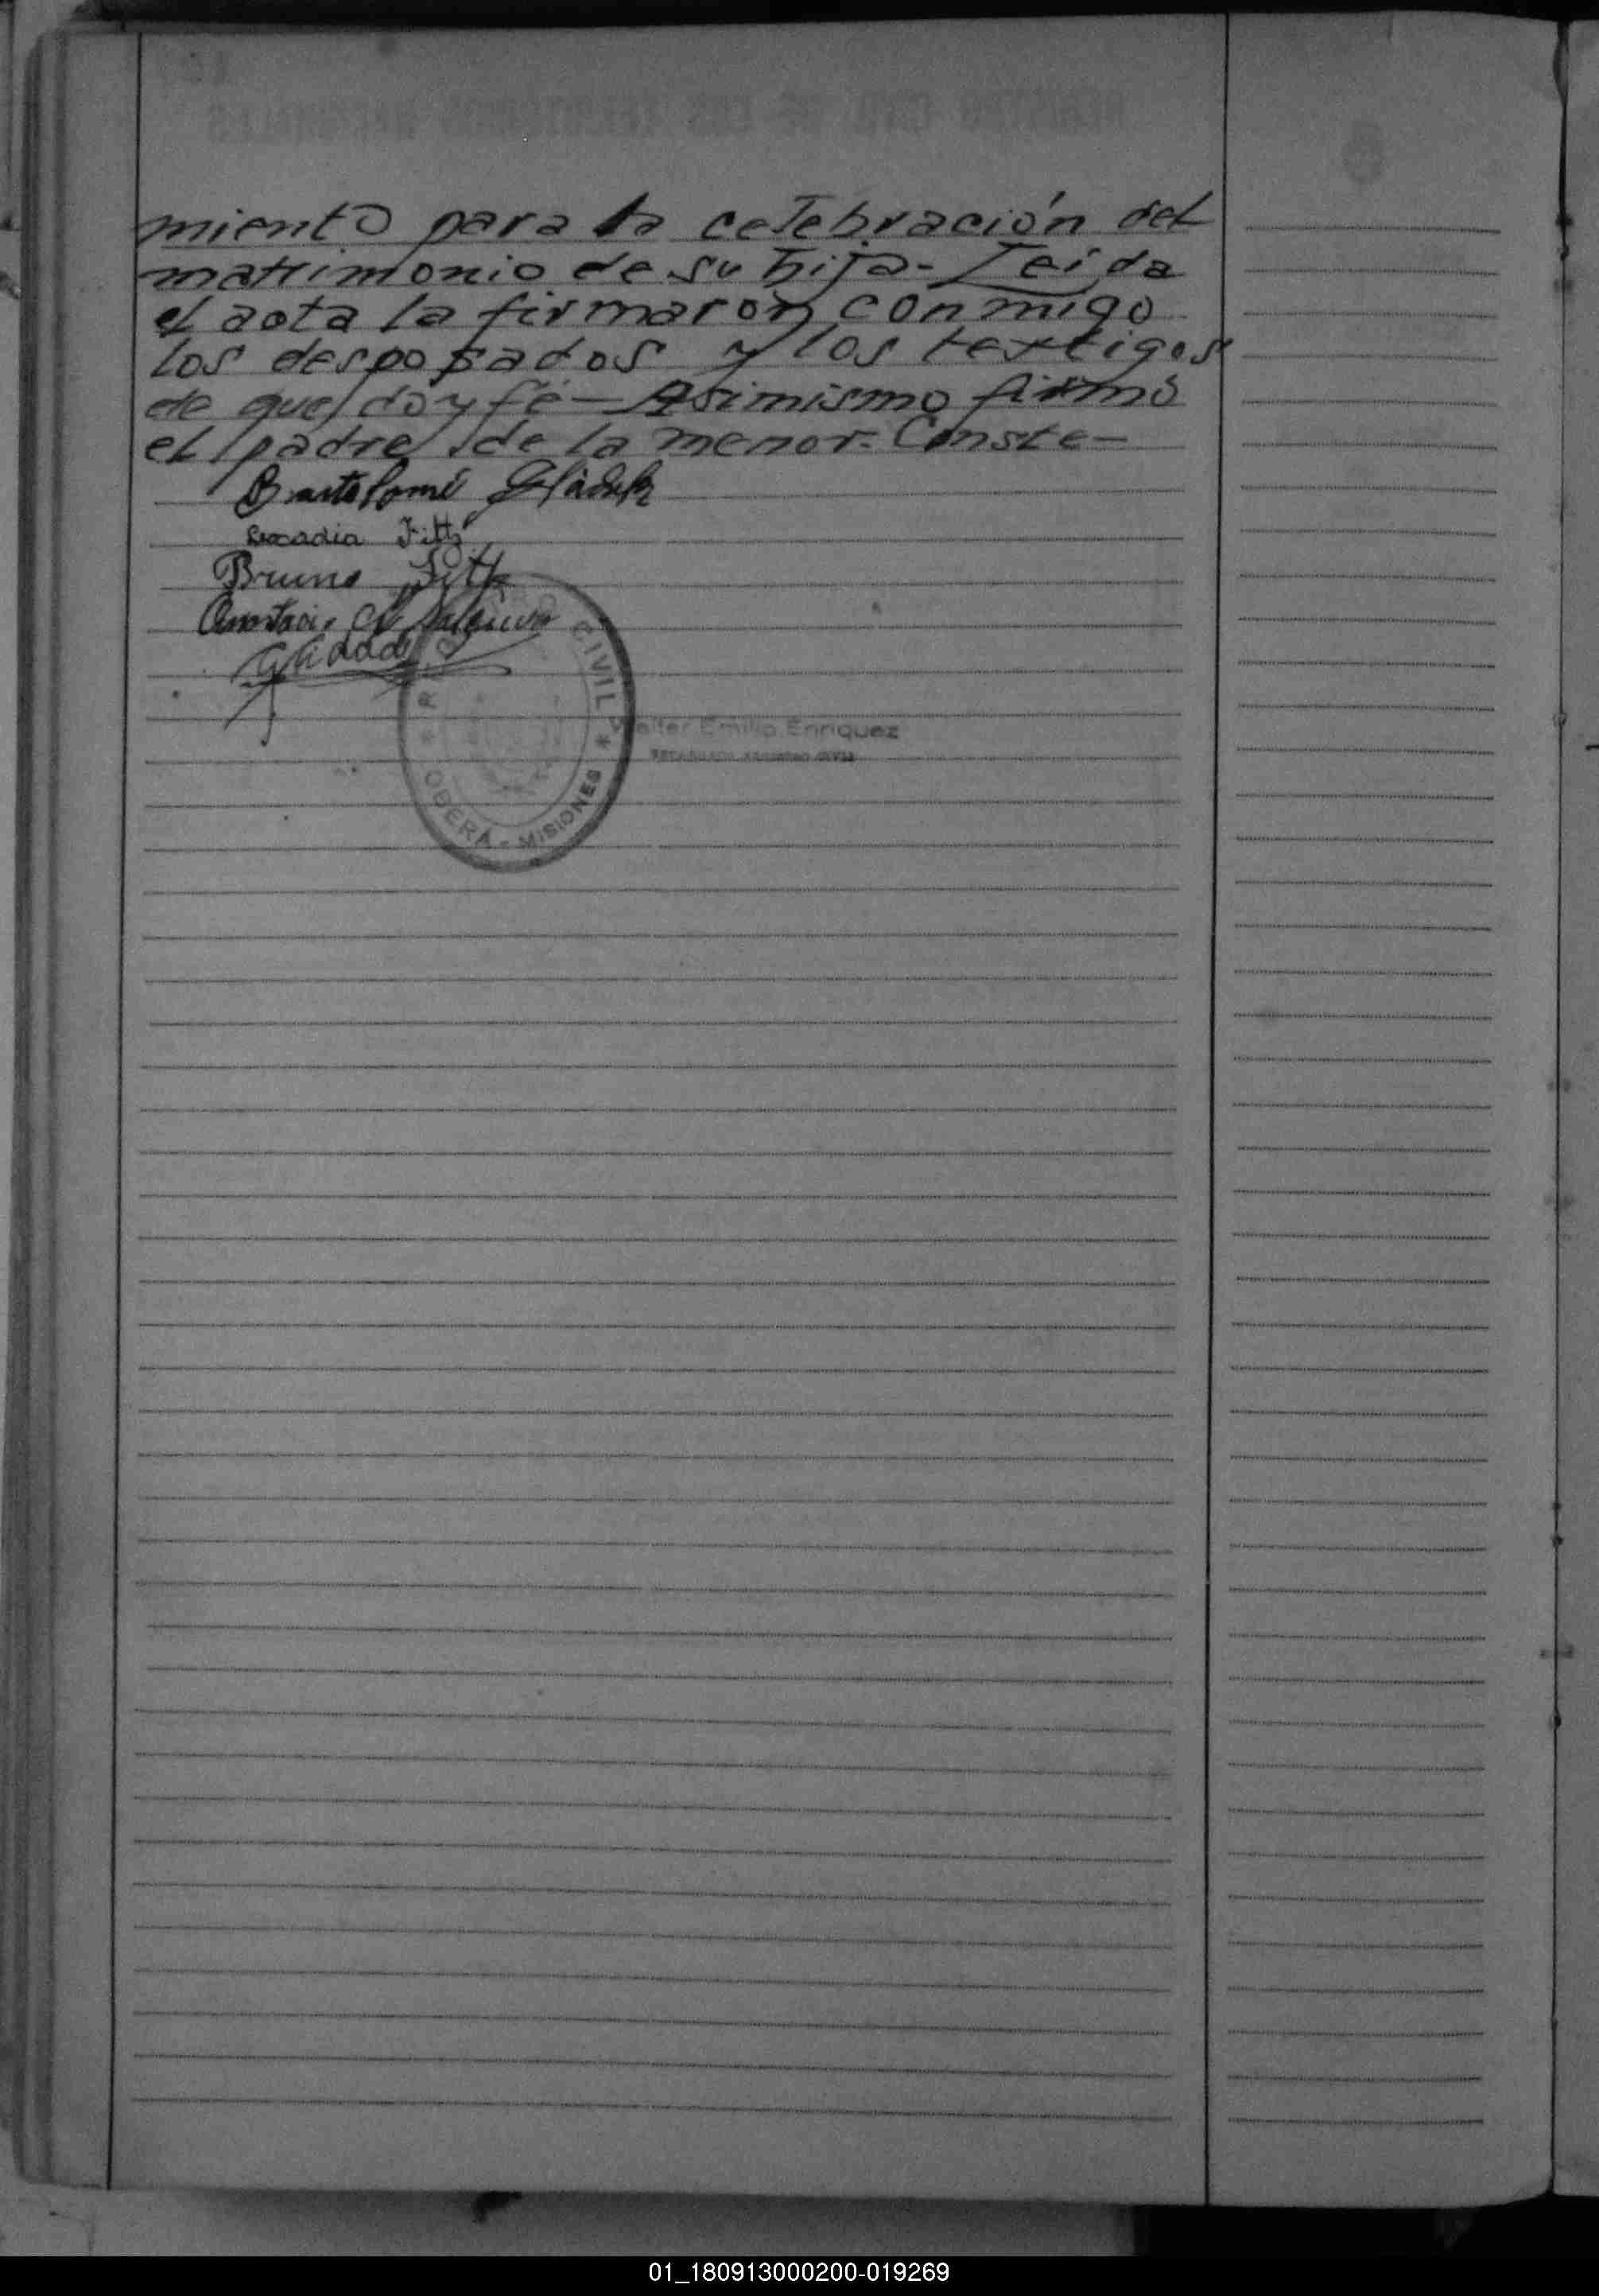 miento para la celebración del
matrimonio de su hija - Leída
el acta la firmaron conmigo
los desposados y los testigos
de que doy fé - Asimismo firmó
el padre de la menor. Conste -
Bartolomé
Leocadia
Bruno
CIVIL
OBERA - MISIONES
Walter Emilio Enriquez
01_180913000200-019269